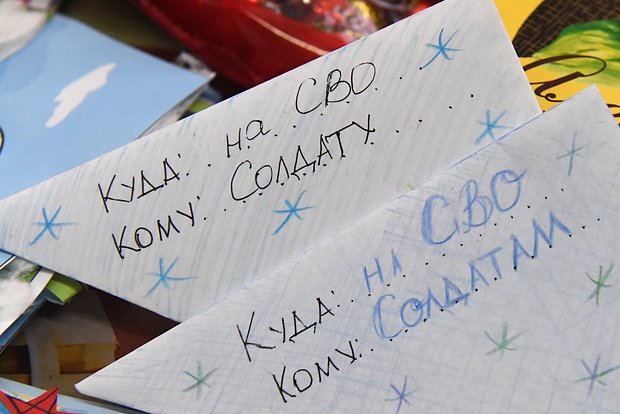 Куда: на СВО
Кому: Солдату
Куда: на СВО
Кому: Солдатам